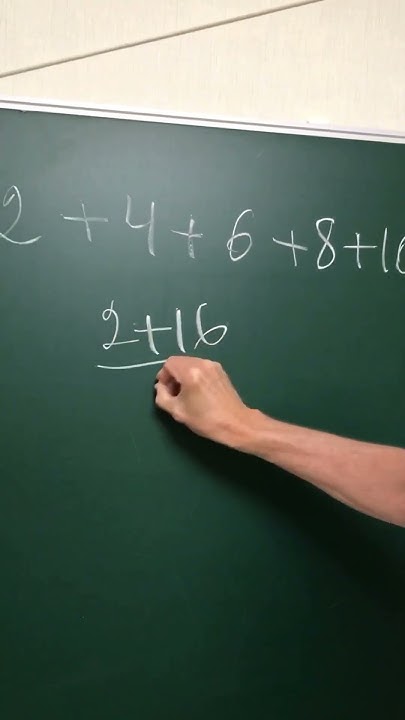 2 + 4 + 6 + 8 + 10
2+16